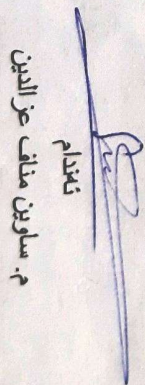 ئەندام
م. ساوين مناف عز الدين